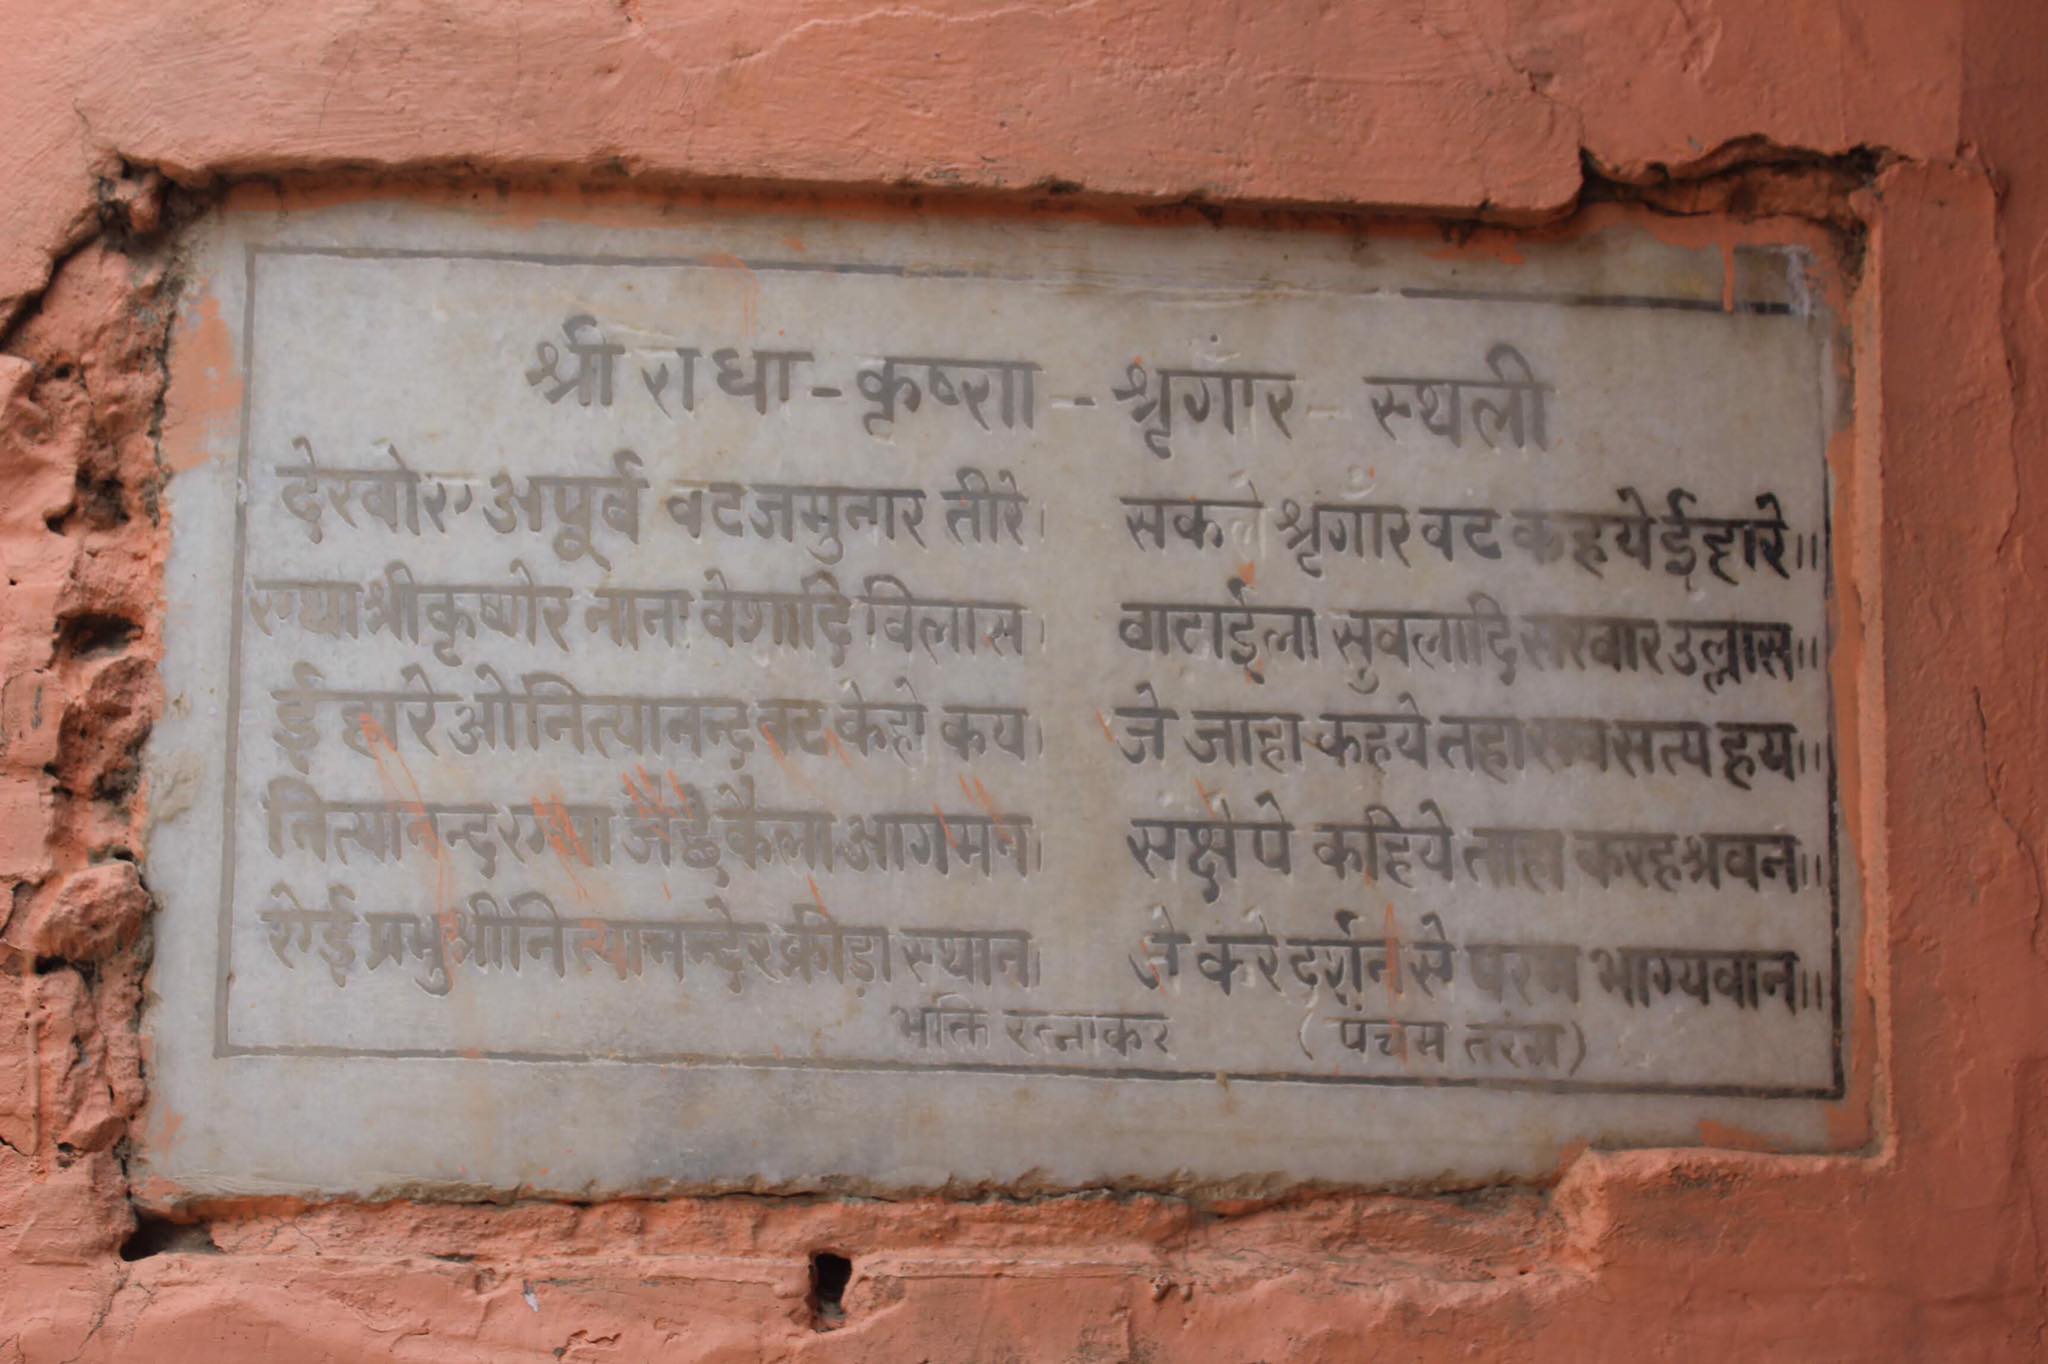 श्री राधा - कृष्ण - श्रृगाँर - स्थली
देखोए अपूर्व वट जमुनार तीरे। सकले श्रृंगार वट कहये ईहारे॥
एथा श्रीकृष्णेर नाना वेशादि विलास। वाटाईला सुवलादि सखार उल्लास॥
ईहारे ओ नित्यानन्द वट केहो कय। जे जाहा कहये तहा सब सत्य हय॥
नित्यानन्द एथा जैछै कैला आगमन। सक्षेपे कहिये ताहा करह श्रवन॥
एई प्रभु श्री नित्यानन्देर क्रीड़ा स्थान। जे करे दर्शन से परम भाग्यवान॥
भक्ति रत्नाकर (पंचम तरंग)